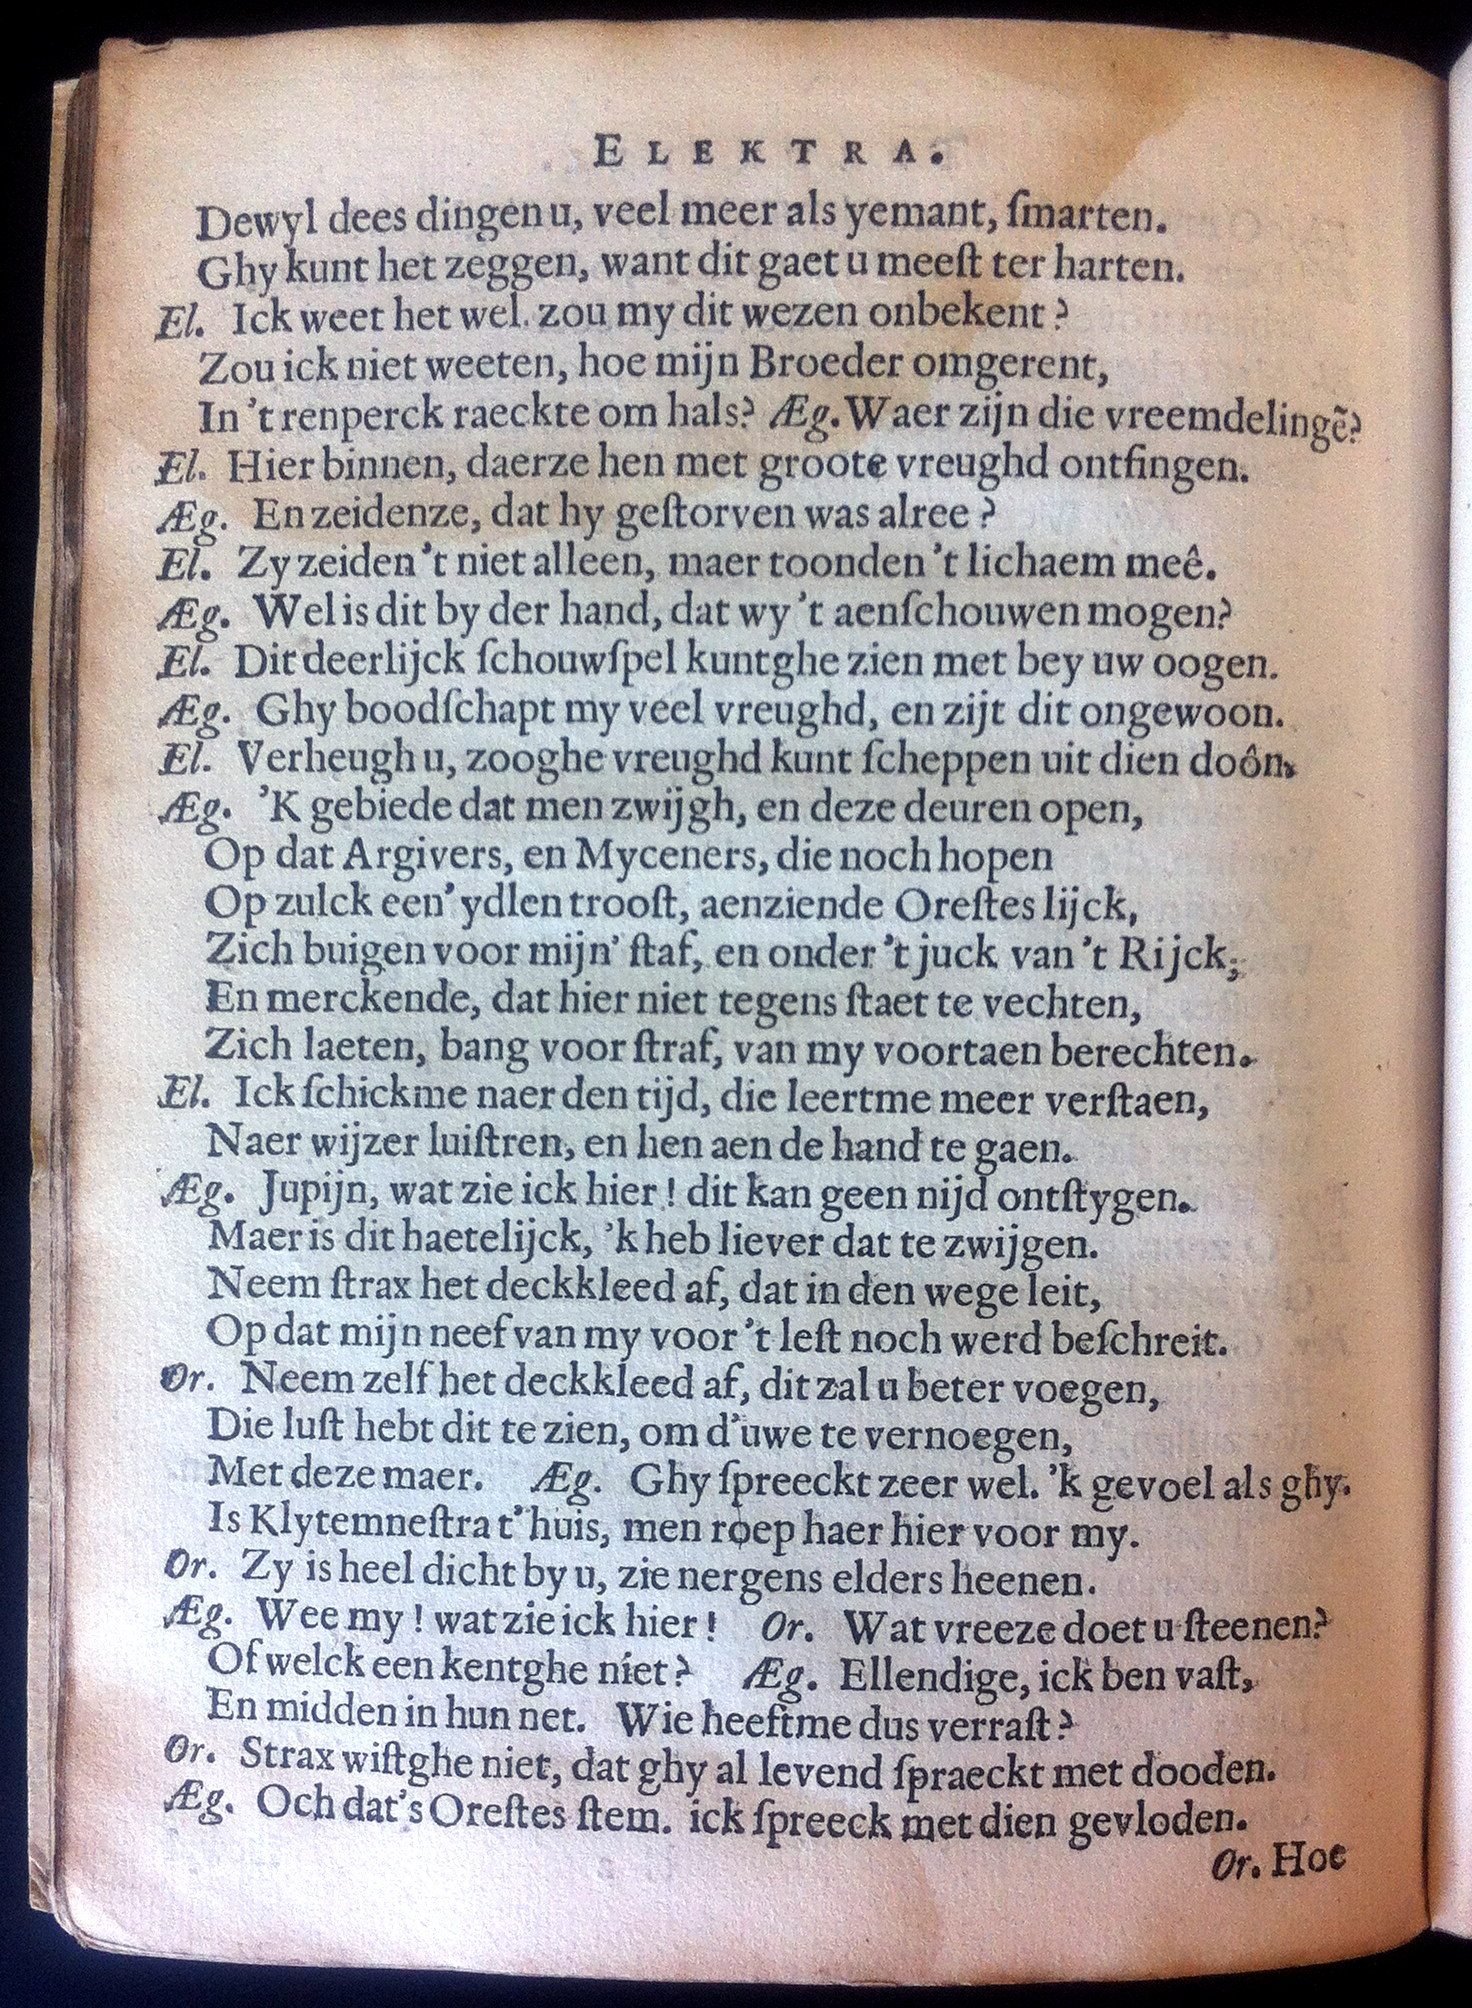 ELEKTRA.
Dewyl dees dingen u, veel meer als yemant, ſmarten.
Ghy kunt het zeggen, want dit gaet u meeſt ter harten.
El. Ick weet het wel. zou my dit wezen onbekent?
Zou ick niet weeten, hoe mijn Broeder omgerent,
In 't renperck raeckte om hals? Æg. Waer zijn die vreemdelingẽ?
El. Hier binnen, daerze hen met groote vreughd ontfingen.
Æg. En zeidenze, dat hy geſtorven was alree?
El. Zy zeiden 't niet alleen, maer toonden 't lichaem meê.
Æg. Wel is dit by der hand, dat wy 't aenſchouwen mogen?
El. Dit deerlijck ſchouwſpel kuntghe zien met bey uw oogen.
Æg. Ghy boodſchapt my veel vreughd, en zijt dit ongewoon.
El. Verheugh u, zooghe vreughd kunt ſcheppen uit dien doôn.
Æg. 'K gebiede dat men zwijgh, en deze deuren open,
Op dat Argivers, en Myceners, die noch hopen
Op zulck een' ydlen trooſt, aenziende Oreſtes lijck,
Zich buigen voor mijn' ſtaf, en onder 't juck van 't Rijck;
En merckende, dat hier niet tegens ſtaet te vechten,
Zich laeten, bang voor ſtraf, van my voortaen berechten.
El. Ick ſchickme naer den tijd, die leertme meer verſtaen,
Naer wijzer luiſtren, en hen aen de hand te gaen.
Æg. Jupijn, wat zie ick hier! dit kan geen nijd ontſtygen.
Maer is dit haetelijck, 'k heb liever dat te zwijgen.
Neem ſtrax het deckkleed af, dat in den wege leit,
Op dat mijn neef van my voor 't leſt noch werd beſchreit.
Or. Neem zelf het deckkleed af, dit zal u beter voegen,
Die luſt hebt dit te zien, om d'uwe te vernoegen,
Met deze maer. Æg. Ghy ſpreeckt zeer wel. 'k gevoel als ghy.
Is Klytemneſtra t' huis, men roep haer hier voor my.
Or. Zy is heel dicht by u, zie nergens elders heenen.
Æg. Wee my! wat zie ick hier! Or. Wat vreeze doet u ſteenen?
Of welck een kentghe niet? Æg. Ellendige, ick ben vaſt,
En midden in hun net. Wie heeftme dus verraſt?
Or. Strax wiſtghe niet, dat ghy al levend ſpraeckt met dooden.
Æg. Och dat's Oreſtes ſtem. ick ſpreeck met dien gevloden.
Or. Hoe